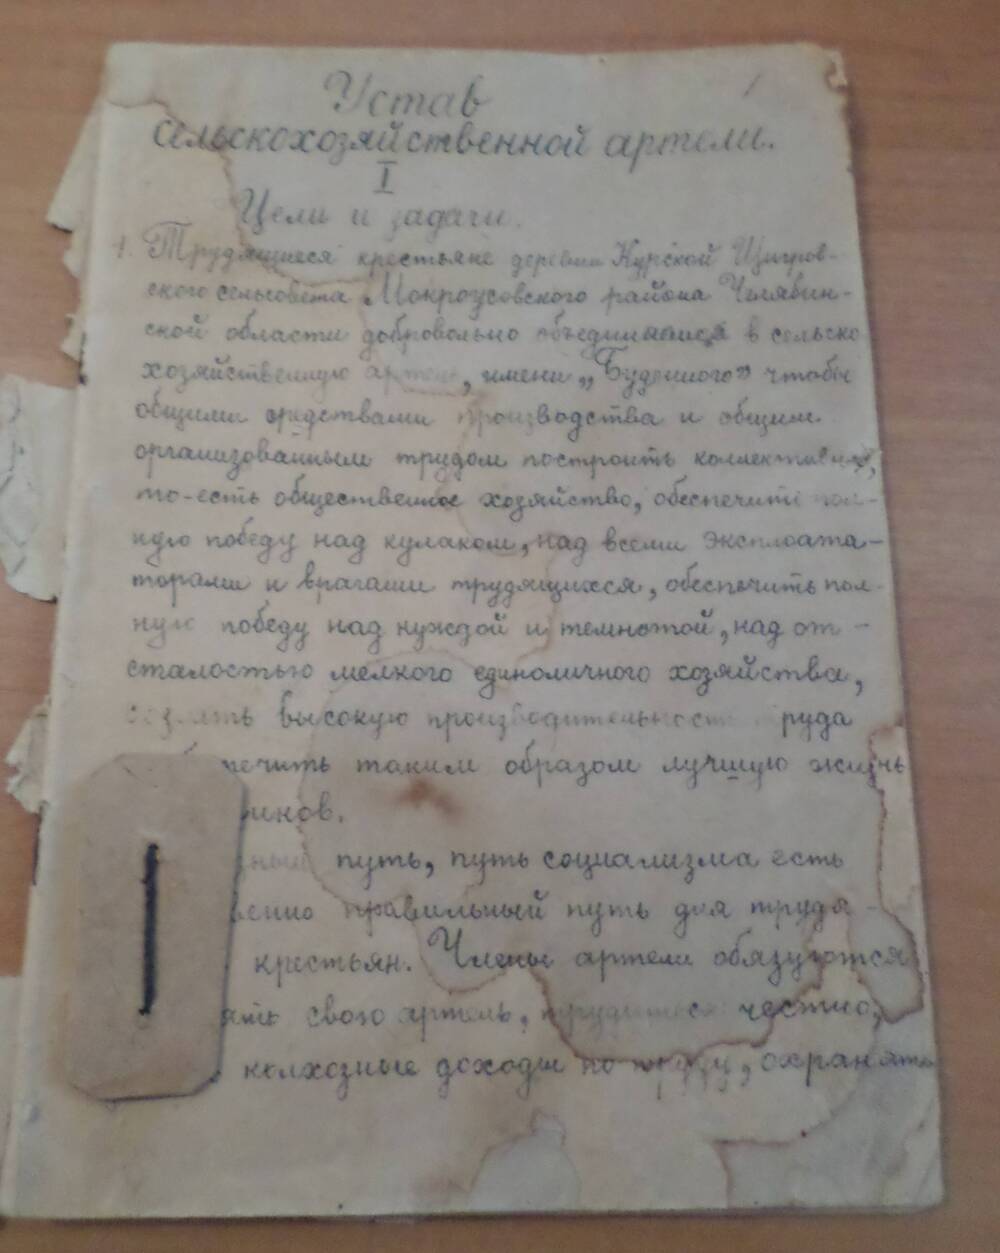 1
Устав
сельскохозяйственной артели.
I
Цели и задачи.
1. Трудящиеся крестьяне деревни Курской Щигров-
ского сельсовета Мокроусовского района Челябин-
ской области добровольно объединяемся в сельско
хозяйственную артель, имени „Буденного” чтобы
общими средствами производства и общим
организованным трудом построить коллективное,
то-есть общественное хозяйство, обеспечить пол-
ную победу над кулаком, над всеми эксплоата-
торами и врагами трудящихся, обеспечить пол-
ную победу над нуждой и темнотой, над от-
сталостью мелкого единоличного хозяйства,
создать высокую производительность труда
печить таким образом лучшую жизнь
иков.
зный путь, путь социализма есть
венно правильный путь для трудя-
крестьян. Члены артели обязуются
ять свою артель, трудиться честно,
колхозные доходы по труду, охранять